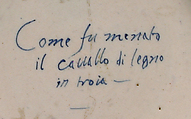 Come fu menato
il cauallo di legno
in troia —.